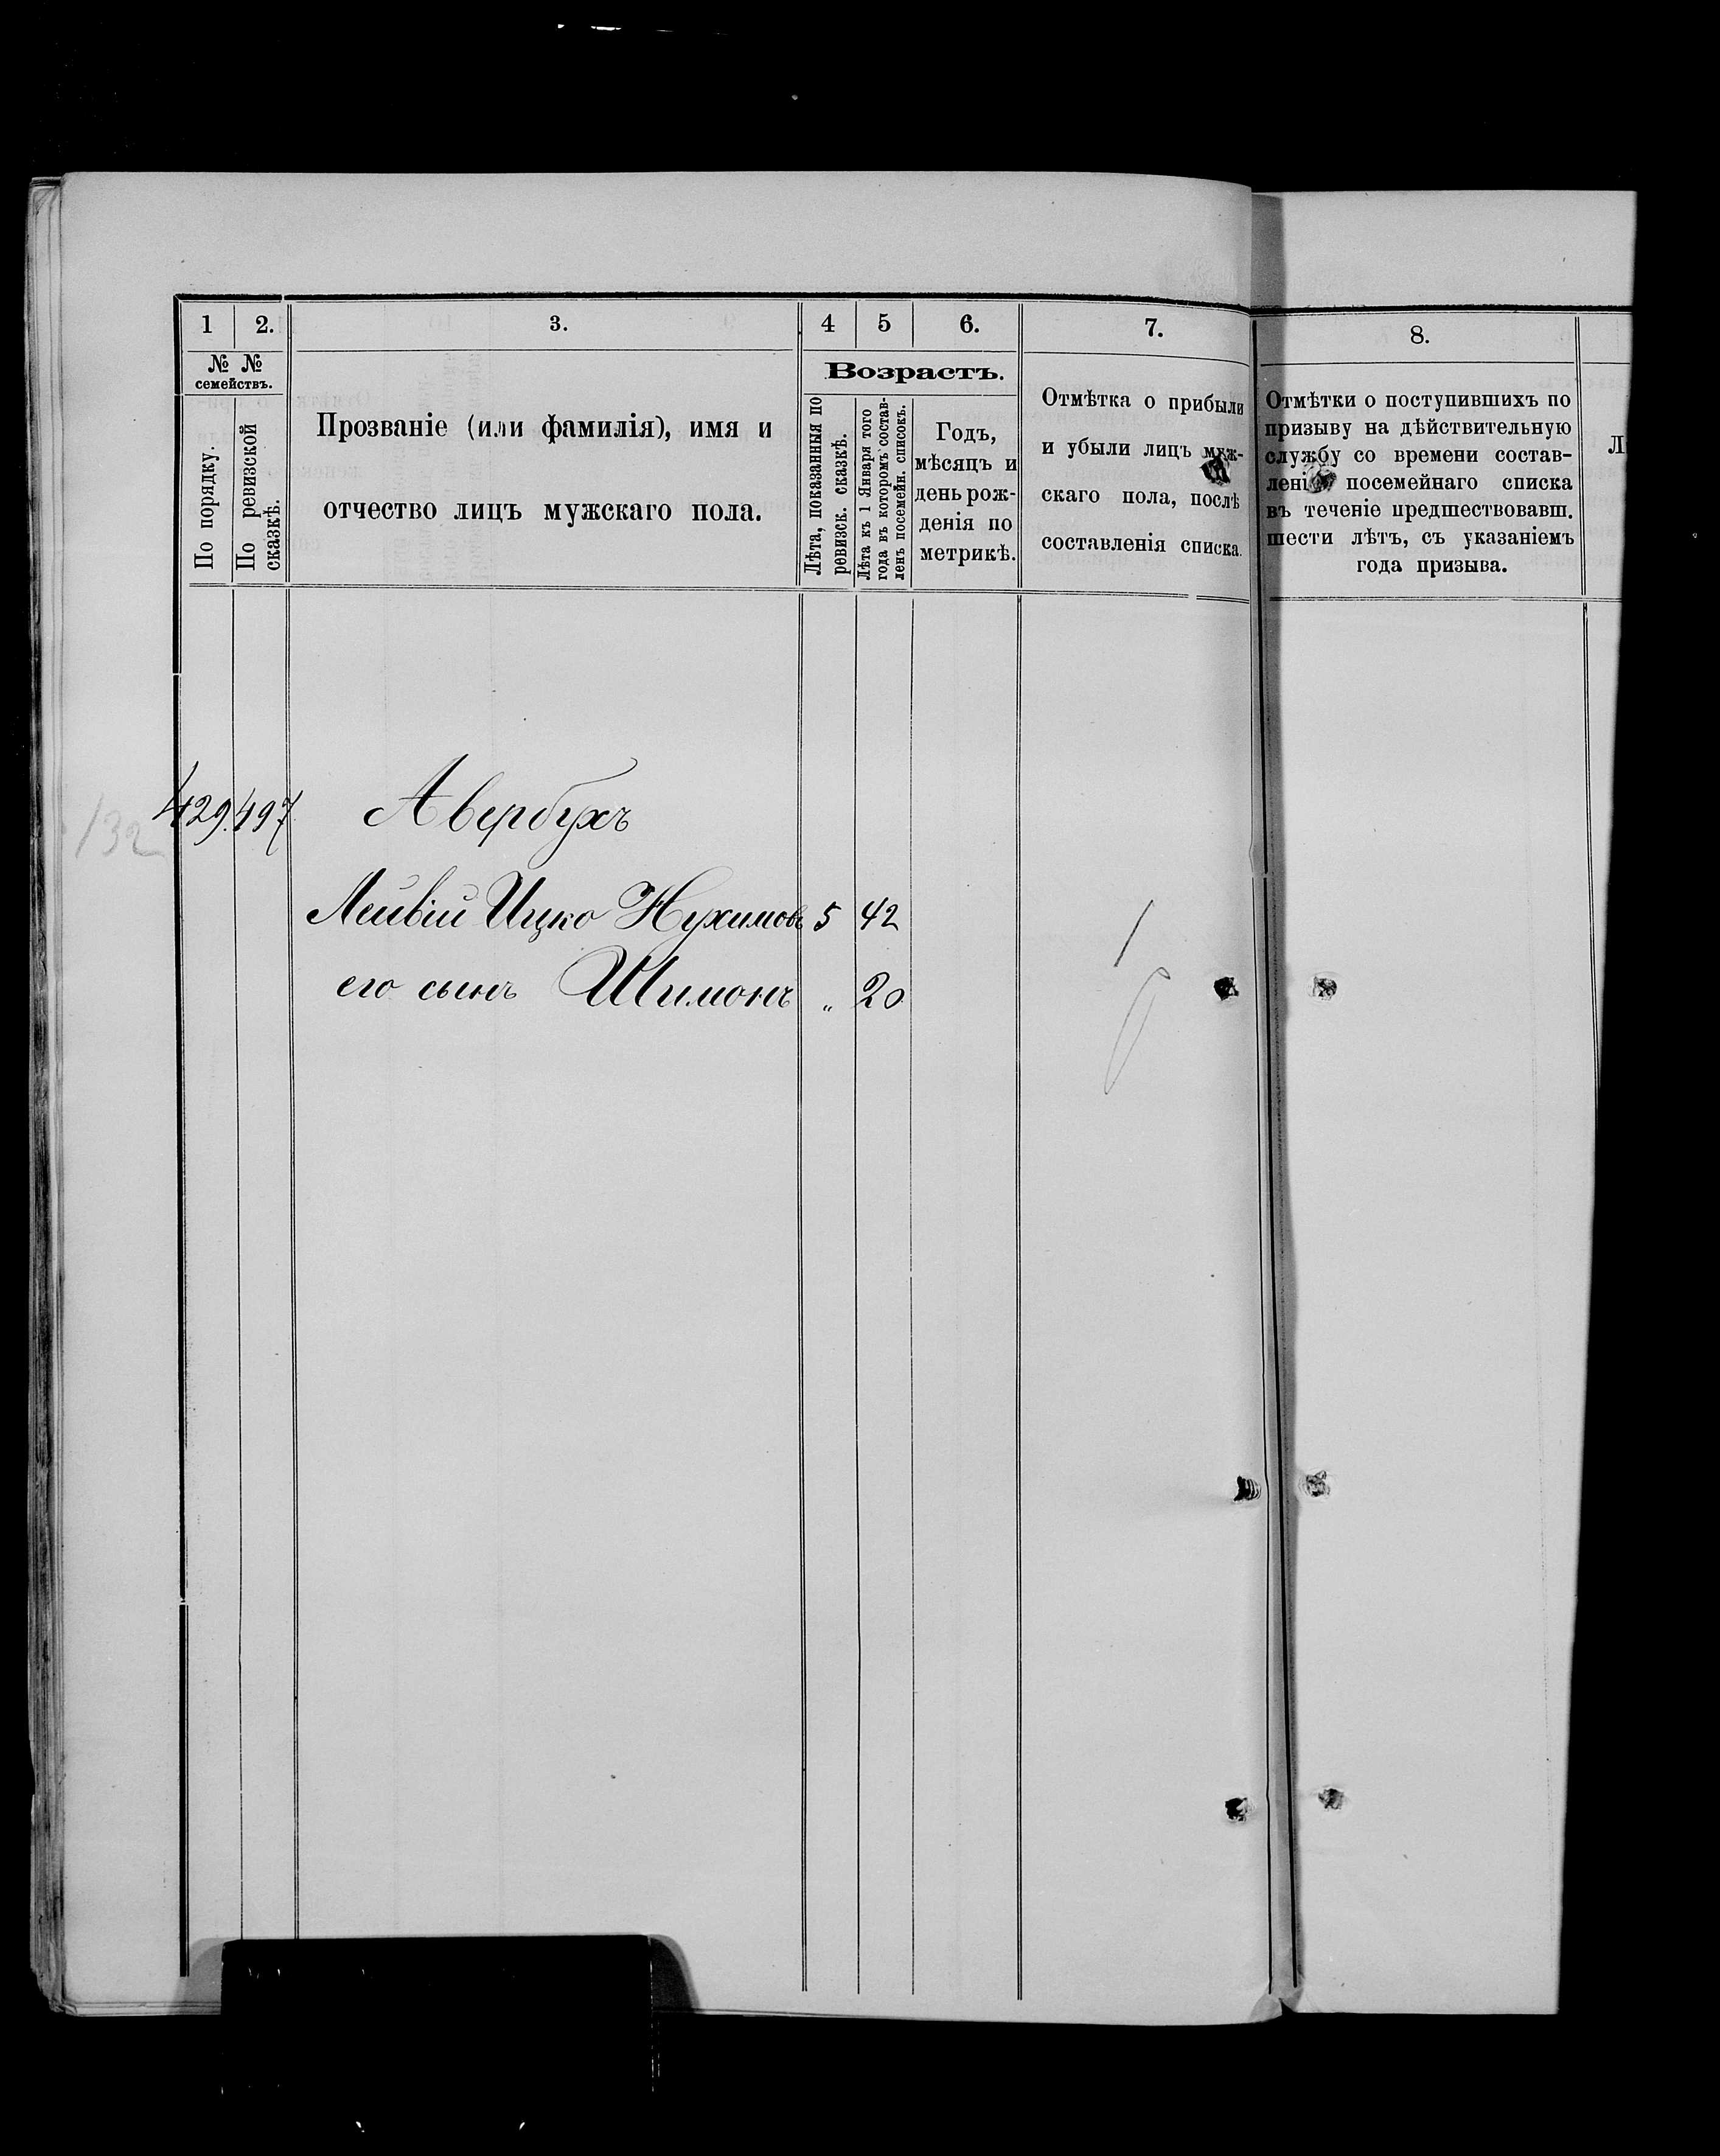 1 2. 3. 4 5 6. 7. 8.
№ № семействъ.
По порядку.
По ревизской сказкѣ.
Прозваніе (или фамилія), имя и
отчество лицъ мужскаго пола.
Возрастъ.
Лѣта, показанныя по
ревизск. сказкѣ.
Лѣта къ 1 Января того
года въ которомъ состав-
ленъ посемейн. списокъ.
Годъ,
мѣсяцъ и
день рож-
денія по
метрикѣ.
Отмѣтка о прибыли
и убыли лицъ муж-
скаго пола, послѣ
составленія списка.
Отмѣтки о поступившихъ по
призыву на дѣйствительную
службу со времени состав-
ленія посемейнаго списка
въ теченіе предшествовавш.
шести лѣтъ, съ указаніемъ
года призыва.
132 429. 497 Авербухъ
Лейвій Ицко Нухимовъ 5 42
его сынъ Шимонъ „ 20